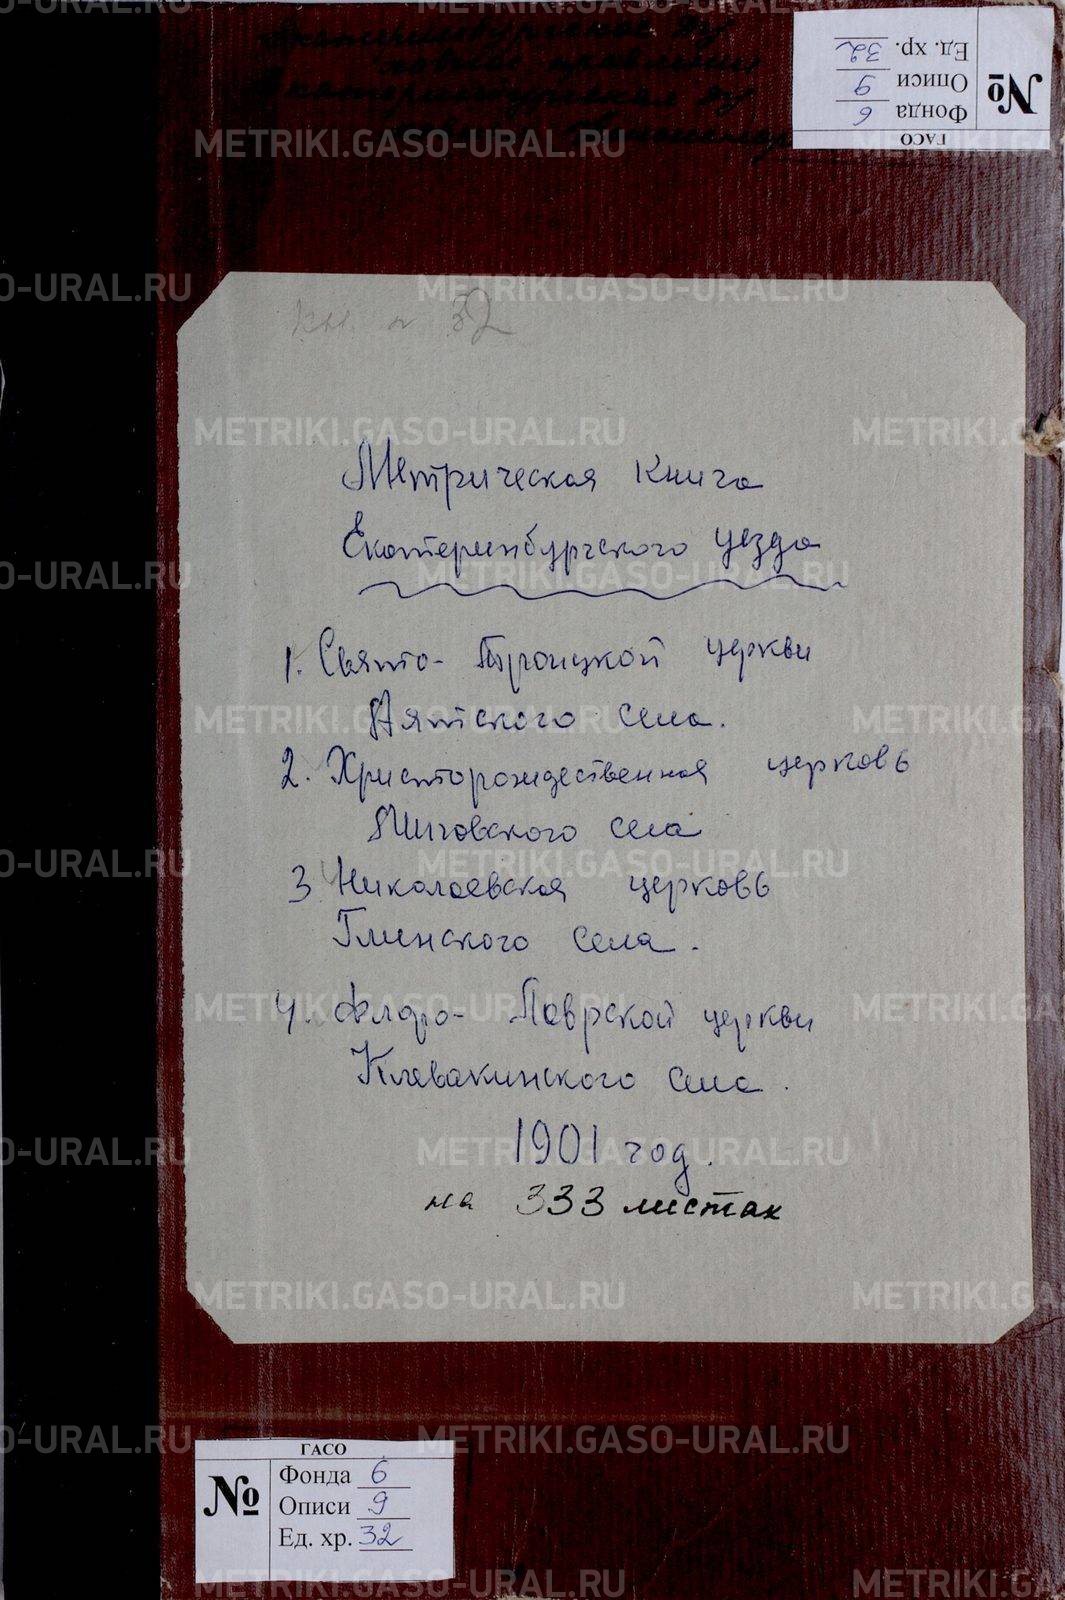 Екатеринбургское ду
ховное правление
Екатеринбургская ду
ГАСО
№
Фонда 6
Описи 9
Ед. хр. 32
кн. № 32
Метрическая книга
Екатеринбургского уезда
1. Свято- Троицкой церкви
Аятского села.
2. Христорождественная церковь
села
3 Николаевская церковь
Глинского села.
4. Флоро- Лаврской церкви
Клевакинского села.
1901 год.
на 333 листах
ГАСО
№
Фонда 6
Описи 9
Ед. хр. 32
METRIKI.GASO-URAL.RU